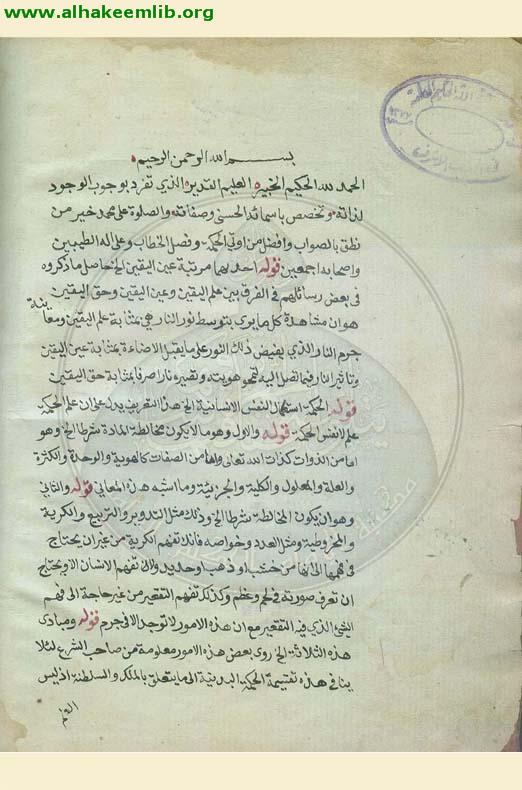 www.alhakeemlib.org
بسم الله الرحمن الرحيم
الحمد لله الحكيم الخبير العليم القدير الذي تفرد بوجوب الوجود
لذاته وتخصص باسمائه الحسنى وصفاته والصلوة على محمد خير من
نطق بالصواب وافضل من اوتي الحكمة وفصل الخطاب وعلى اله الطيبين
واصحابه اجمعين قوله احديهما مرتبة عين اليقين الخ حاصل ما ذكروه
فى بعض رسائلهم فى الفرق بين علم اليقين وعين اليقين وحق اليقين
هو ان مشاهدة كل ما يرى بتوسط نور النار هي بمثابة علم اليقين ومعاينة
جرم النار الذي يفيض ذلك النور على ما يقبل الاضاءة بمثابة عين اليقين
وتاثير النار فيما تصل اليه لتمحو هويته وتصيره نارا صرفا بمثابة حق اليقين
قوله الحكمة استكمال النفس الانسانية الخ هذا التعريف يدل على ان علم الحكمة
علم لا نفس الحكمة قوله والاول وهو ما لا يكون مخالطة المادة شرطا الخ وهو
اما من الذوات كذات الله تعالى واما من الصفات كالهوية والوحدة والكثرة
والعلة والمعلول والكلية والجزئية وما اشبه هذه المعاني قوله والثاني
وهو ان يكون المخالطة شرطا الخ وذلك مثل التدوير والتربيع والكرية
والمخروطية ومثل العدد وخواصه فانك تفهم الكرية من غير ان يحتاج
فى فهمها الى انها من خشب او ذهب او حديد ولا تفهم الانسان الا ويحتاج
ان تعرف صورته فى لحم وعظم وكذلك تفهم التقعير من غير حاجة الى فهم
الشئ الذي فيه التقعير مع ان هذه الامور لا توجد الا فى جرم قوله ومبادى
هذه الثلاثة الخ روى بعض هذه الامور معلومة من صاحب الشرع لئلا
ينافى هذه تقسيمة الحكمة البدنية الى ما يتعلق بالملك والسلطنة اذ ليس